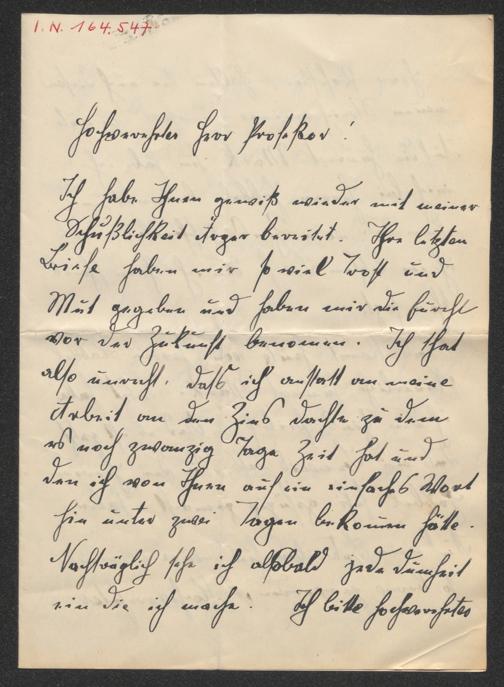 I.N. 164.547
Hochverehrter Herr Professor!
Ich habe Ihnen gewiß wieder mit meiner
Schußlichkeit Ärger bereitet. Ihre letzten
Briefe haben mir so viel Trost und
Mut gegeben und haben mir die Furcht
vor der Zukunft benommen. Ich that
also unrecht, daß ich anstatt an meine
Arbeit an den Zins dachte zu dem
es noch zwanzig Tage Zeit hat und
den ich von Ihnen auf ein einfaches Wort
hin unter zwei Tagen bekommen hätte.
Nachträglich sehe ich alsobald jede Dumheit
ein die ich mache. Ich bitte hochverehrter